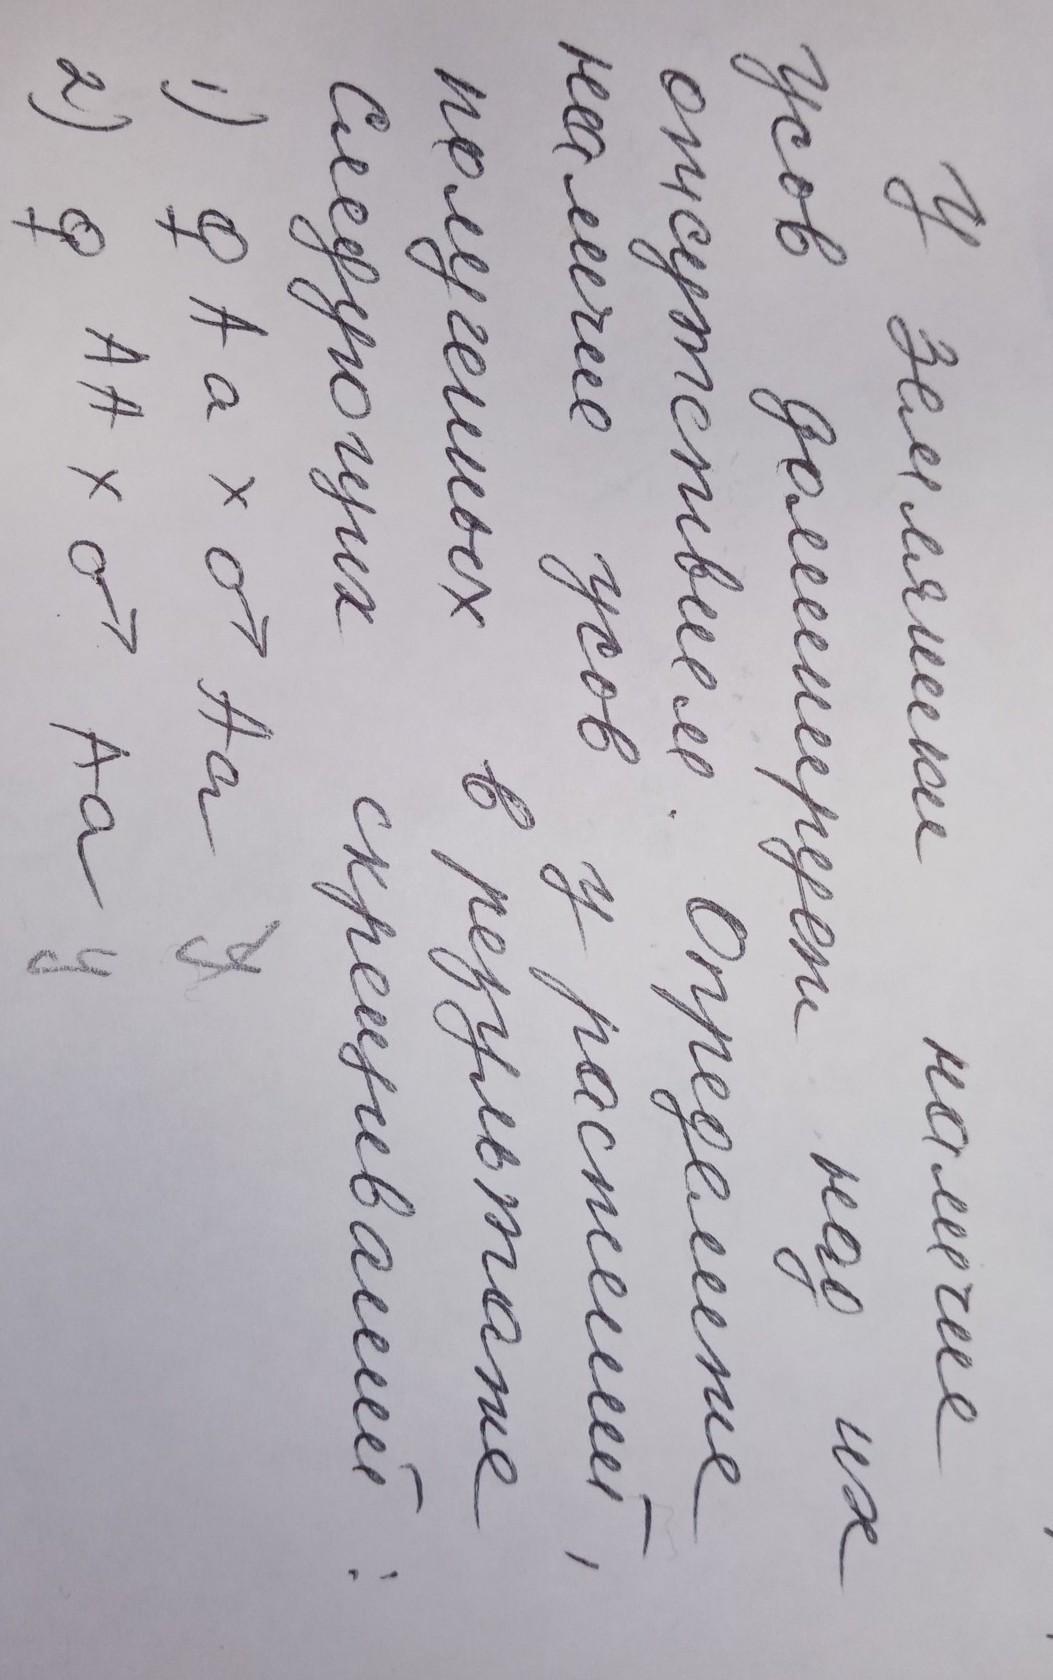 У земляники наличие
усов доминирует над их
отсутствием. Определите
наличие усов у растений,
полученных в результате
следующих скрещиваний:
1) ♀ Aa x ♂ Aa у
2) ♀ AA x ♂ Aa у